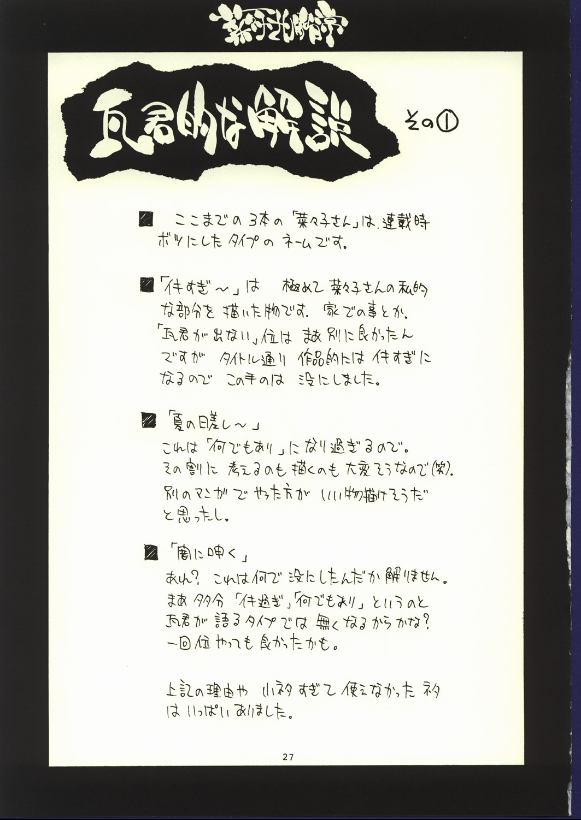 瓦君的な解説 その①
■ ここまでの3本の「菜々子さん」は、連載時
ボツにしたタイプのネームです。
■ 「イキすぎ〜」は 極めて菜々子さんの私的
な部分を描いた物です。家での事とか。
「瓦君が出ない」位は まあ別に良かったん
ですが タイトル通り 作品的には イキすぎに
なるので この手のは 没にしました。
■ 「夏の日差し〜」
これは「何でもあり」になり過ぎるので。
その割に 考えるのも描くのも 大変そうなので(笑)。
別のマンガで やった方が いい物描けそうだ
と思ったし。
■ 「闇に呻く」
あれ? これは何で 没にしたんだか 解りません。
まあ 多分 「イキ過ぎ」、「何でもあり」というのと
瓦君が語るタイプでは 無くなるからかな?
一回位やっても良かったかも。
上記の理由や 小ネタすぎて 使えなかった ネタ
は いっぱいありました。
27